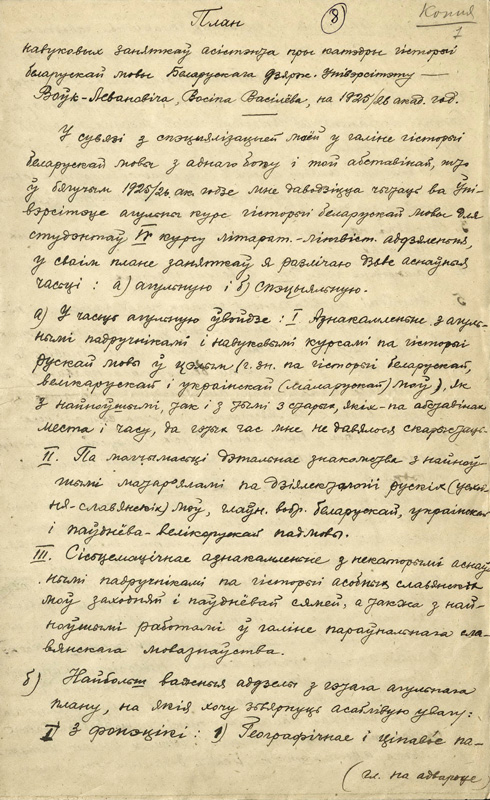 Копия
8
7
План
навуковых заняткаў асістэнта пры катэдры гісторыі
беларускай мовы Беларускага дзярж. Унівэрсітэту —
Воўк-Левановіча, Восіпа Васілёва, на 1925/26 акад. год.
У сувязі з спэцыялізацыей маёй у галіне гісторыі
беларускай мовы з аднаго боку і той абставінай, што
ў бягучым 1925/26 ак. годзе мне даводзіцца чытаць ва Уні-
вэрсітэце агульны курс гісторыі беларускай мовы для
студэнтаў курсу літарат.-лінгвіст. аддзялення,
у сваім плане заняткаў я разлічаю дзьве асноўныя
часьці: а) агульную і б) спэцыяльную.
а) У часць агульную ўвойдзе: I Азнакамленьне з агуль-
нымі падручнікамі і навуковымі курсамі па гісторыі
рускай мовы ў цэлым (г. зн. па гісторыі беларускай,
велікарускай і украінскай (маларускай) моў), як
з найноўшымі, так і з тымі з старых, якіх па абставінах
места і часу, да гэтых час мне не давялося скарыстаць.
II. Па магчымасьці дэтальнае знакомства з найноў-
шымі матар'яламі па дзіялектолёгіі рускіх (усход-
ня-славянскіх) моў, галоўн. вобр. беларускай, украінскай
і паўднёва-велікорускай падмовы.
III. Сістэматычнае азнакамленьне з некаторымі асноў-
нымі падручнікамі па гісторыі асобных славянскіх
моў заходняй і паўднёвай сямей, а таксама з най-
ноўшымі работамі ў галіне параўнальнага сла-
вянскага мовазнаўства.
б) Найбольш важныя аддзелы з гэтага агульнага
плану, на якія хочу зьвярнуць асаблівую увагу:
I З фонэтікі: 1) Географічнае і па-
(гл. на адвароце)